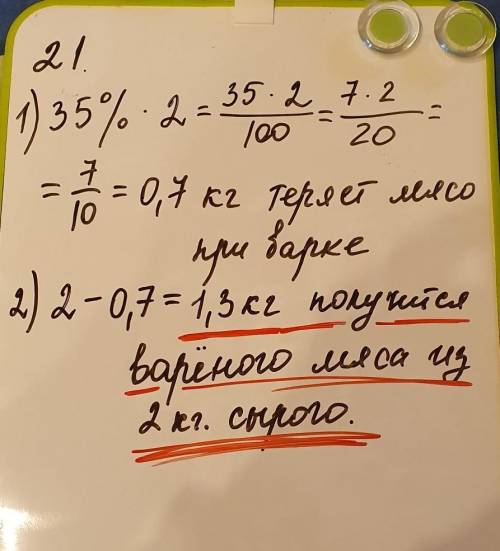 21.
1) 35% · 2 = 35 · 2 / 100 = 7 · 2 / 20 =
= 7/10 = 0,7 кг теряет мясо
при варке
2) 2 – 0,7 = 1,3 кг получится
варёного мяса из
2 кг. сырого.